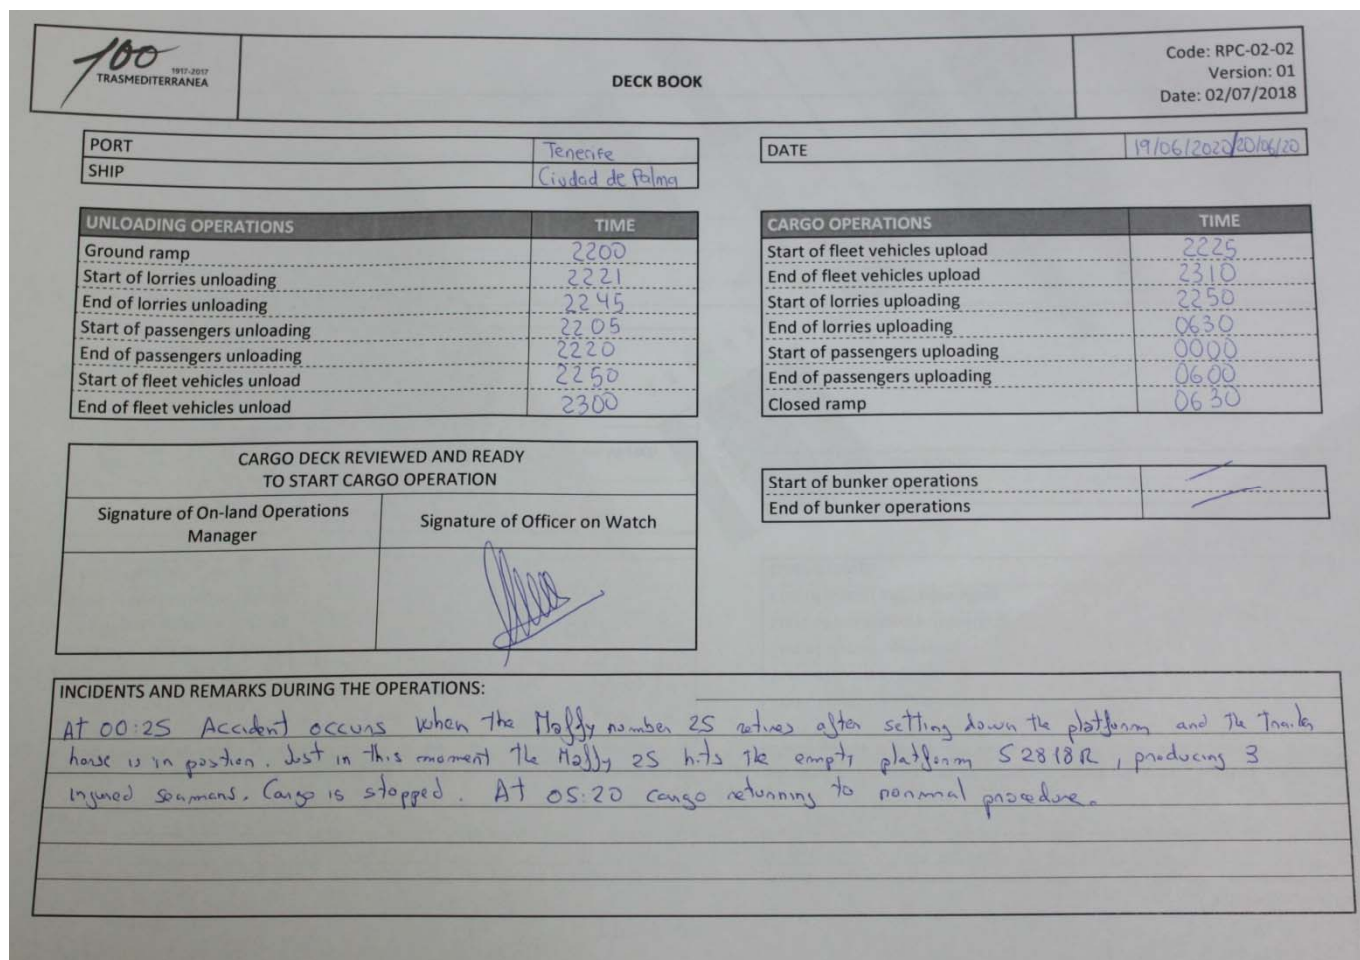 100
1917-2017
TRASMEDITERRANEA
DECK BOOK
Code: RPC-02-02
Version: 01
Date: 02/07/2018
PORT Tenerife
SHIP Ciudad de Palma
DATE 19/06/2020/20/06/20
UNLOADING OPERATIONS TIME
Ground ramp 2200
Start of lorries unloading 2221
End of lorries unloading 2245
Start of passengers unloading 2205
End of passengers unloading 2220
Start of fleet vehicles unload 2250
End of fleet vehicles unload 2300
CARGO OPERATIONS TIME
Start of fleet vehicles upload 2225
End of fleet vehicles upload 2310
Start of lorries uploading 2250
End of lorries uploading 0630
Start of passengers uploading 0000
End of passengers uploading 0600
Closed ramp 0630
CARGO DECK REVIEWED AND READY
TO START CARGO OPERATION
Signature of On-land Operations
Manager
Signature of Officer on Watch
Start of bunker operations
End of bunker operations
INCIDENTS AND REMARKS DURING THE OPERATIONS:
At 00:25 Accident occurs when the Maffy number 25 retires after setting down the platform and the Trailer
horse is in postion. Just in this moment the Maffy 25 hits the empty platform S2818R, producing 3
injured seamans. Cargo is stopped. At 05:20 cargo returning to normal procedure.